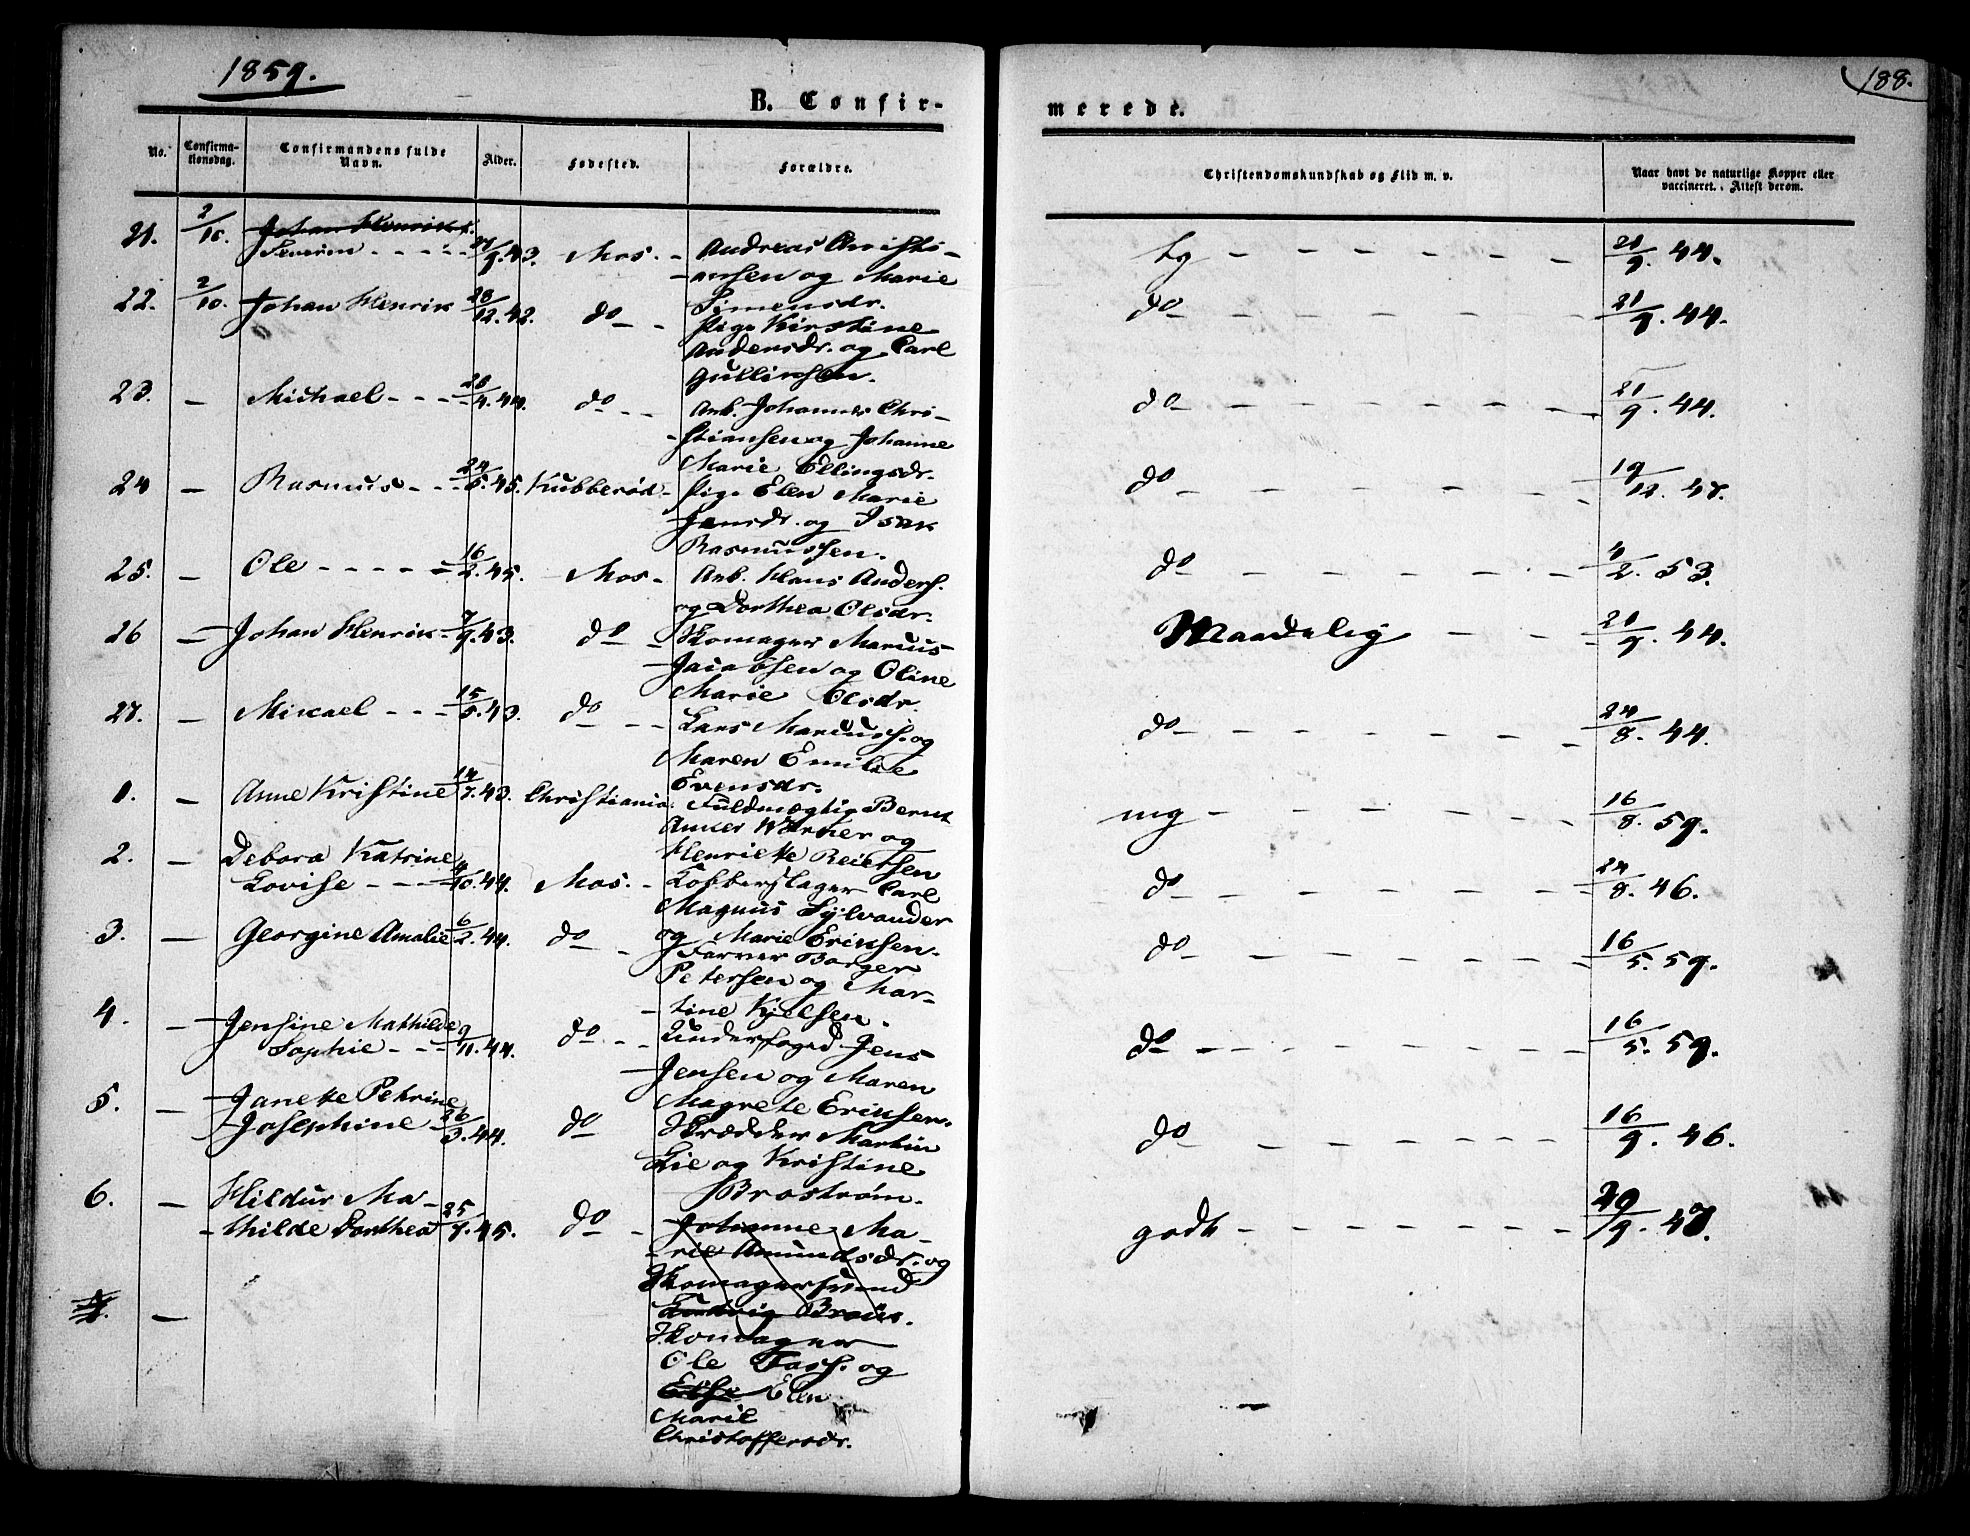 1859.
188.
B. Confir-
merede.
No.
Confirma-
tionsdag.
Confirmandens fulde
Navn.
Alder.
Fødested.
Forældre.
Christendomskundskab og Flid m. v.
Naar havt de naturlige Kopper eller
vaccineret. Attest derom.
21. 2/10. Johan Henrik
Severin - - - - 27/9.43. Mos. - Andreas Christi- tg - - - - - - 21/9. 44.
-ansen og Marie
Simensdr.
22. 2/10. Johan Henrik 28/12.42. do - - Pige Kirstine do - - - - - - 21/9. 44.
Andersdr. og Carl
Gullichsen.
23. - Michael - - - 28/4.44. do - - Arb. Johannes Chri- do - - - - - - 21/9. 44.
-stiansen og Johanne
Marie Ellingsdr.
24 - Rasmus - - 24/5.45. Kubberød - Pige Elen Marie do - - - - - - 19/12. 47.
Jensdr. og Isak
Rasmussen.
25. - Ole - - - - - 16/2.45. - Mos - Arb. Hans Anders. do - - - - - - 4/2. 53.
og Dorthea Olsdr.
26 - Johan Henrik - 7/9.43. do - Skomager Marius Maadelig - - - 21/9. 44.
Jacobsen og Oline
Marie Olsdr.
27. - Mikael - - - 15/5.43. do - - Lars Mariuss. og do - - - - - - 24/8. 44.
Maren Emilie
Evensdr.
1. - Anne Kristine 14/7.43. Christiania. Fuldmægtig Bernt mg - - - - - - 16/8. 59.
Anker Wærner og
Henriette Reiersen
2. - Debora Katrine
Lovise - - - 4/10.44. Mos. - Kobberslager Carl do - - - - - - 24/8. 46.
Magnus Sylvander
og Marie Eriksen.
3. - Georgine Amalie 6/2.44. do - Farver Borger do - - - - - - 16/5. 59.
Petersen og Mar-
-tine Kjelsen.
4. - Jensine Mathilde
Sophie - - 9/11.44. do - - Underfoged Jens do - - - - - - 16/5. 59.
Jensen og Maren
Magrete Eriksen.
5. - Janette Petrine
Josephine - 26/3.44. do Skrædder Martin do - - - - - - 16/9. 46.
Lie og Kristine
Brostrøm.
6. - Hildur Ma-
-thilde Dorthea 25/7.45. do - Johanne Ma- godt - - - - - - 29/9. 47.
-rie Amundsdr. og
Skomagersvend
Ludvig Broun.
Skomager
Ole Tass. og
Else Elen
Marie
Christoffersdr.
7. -